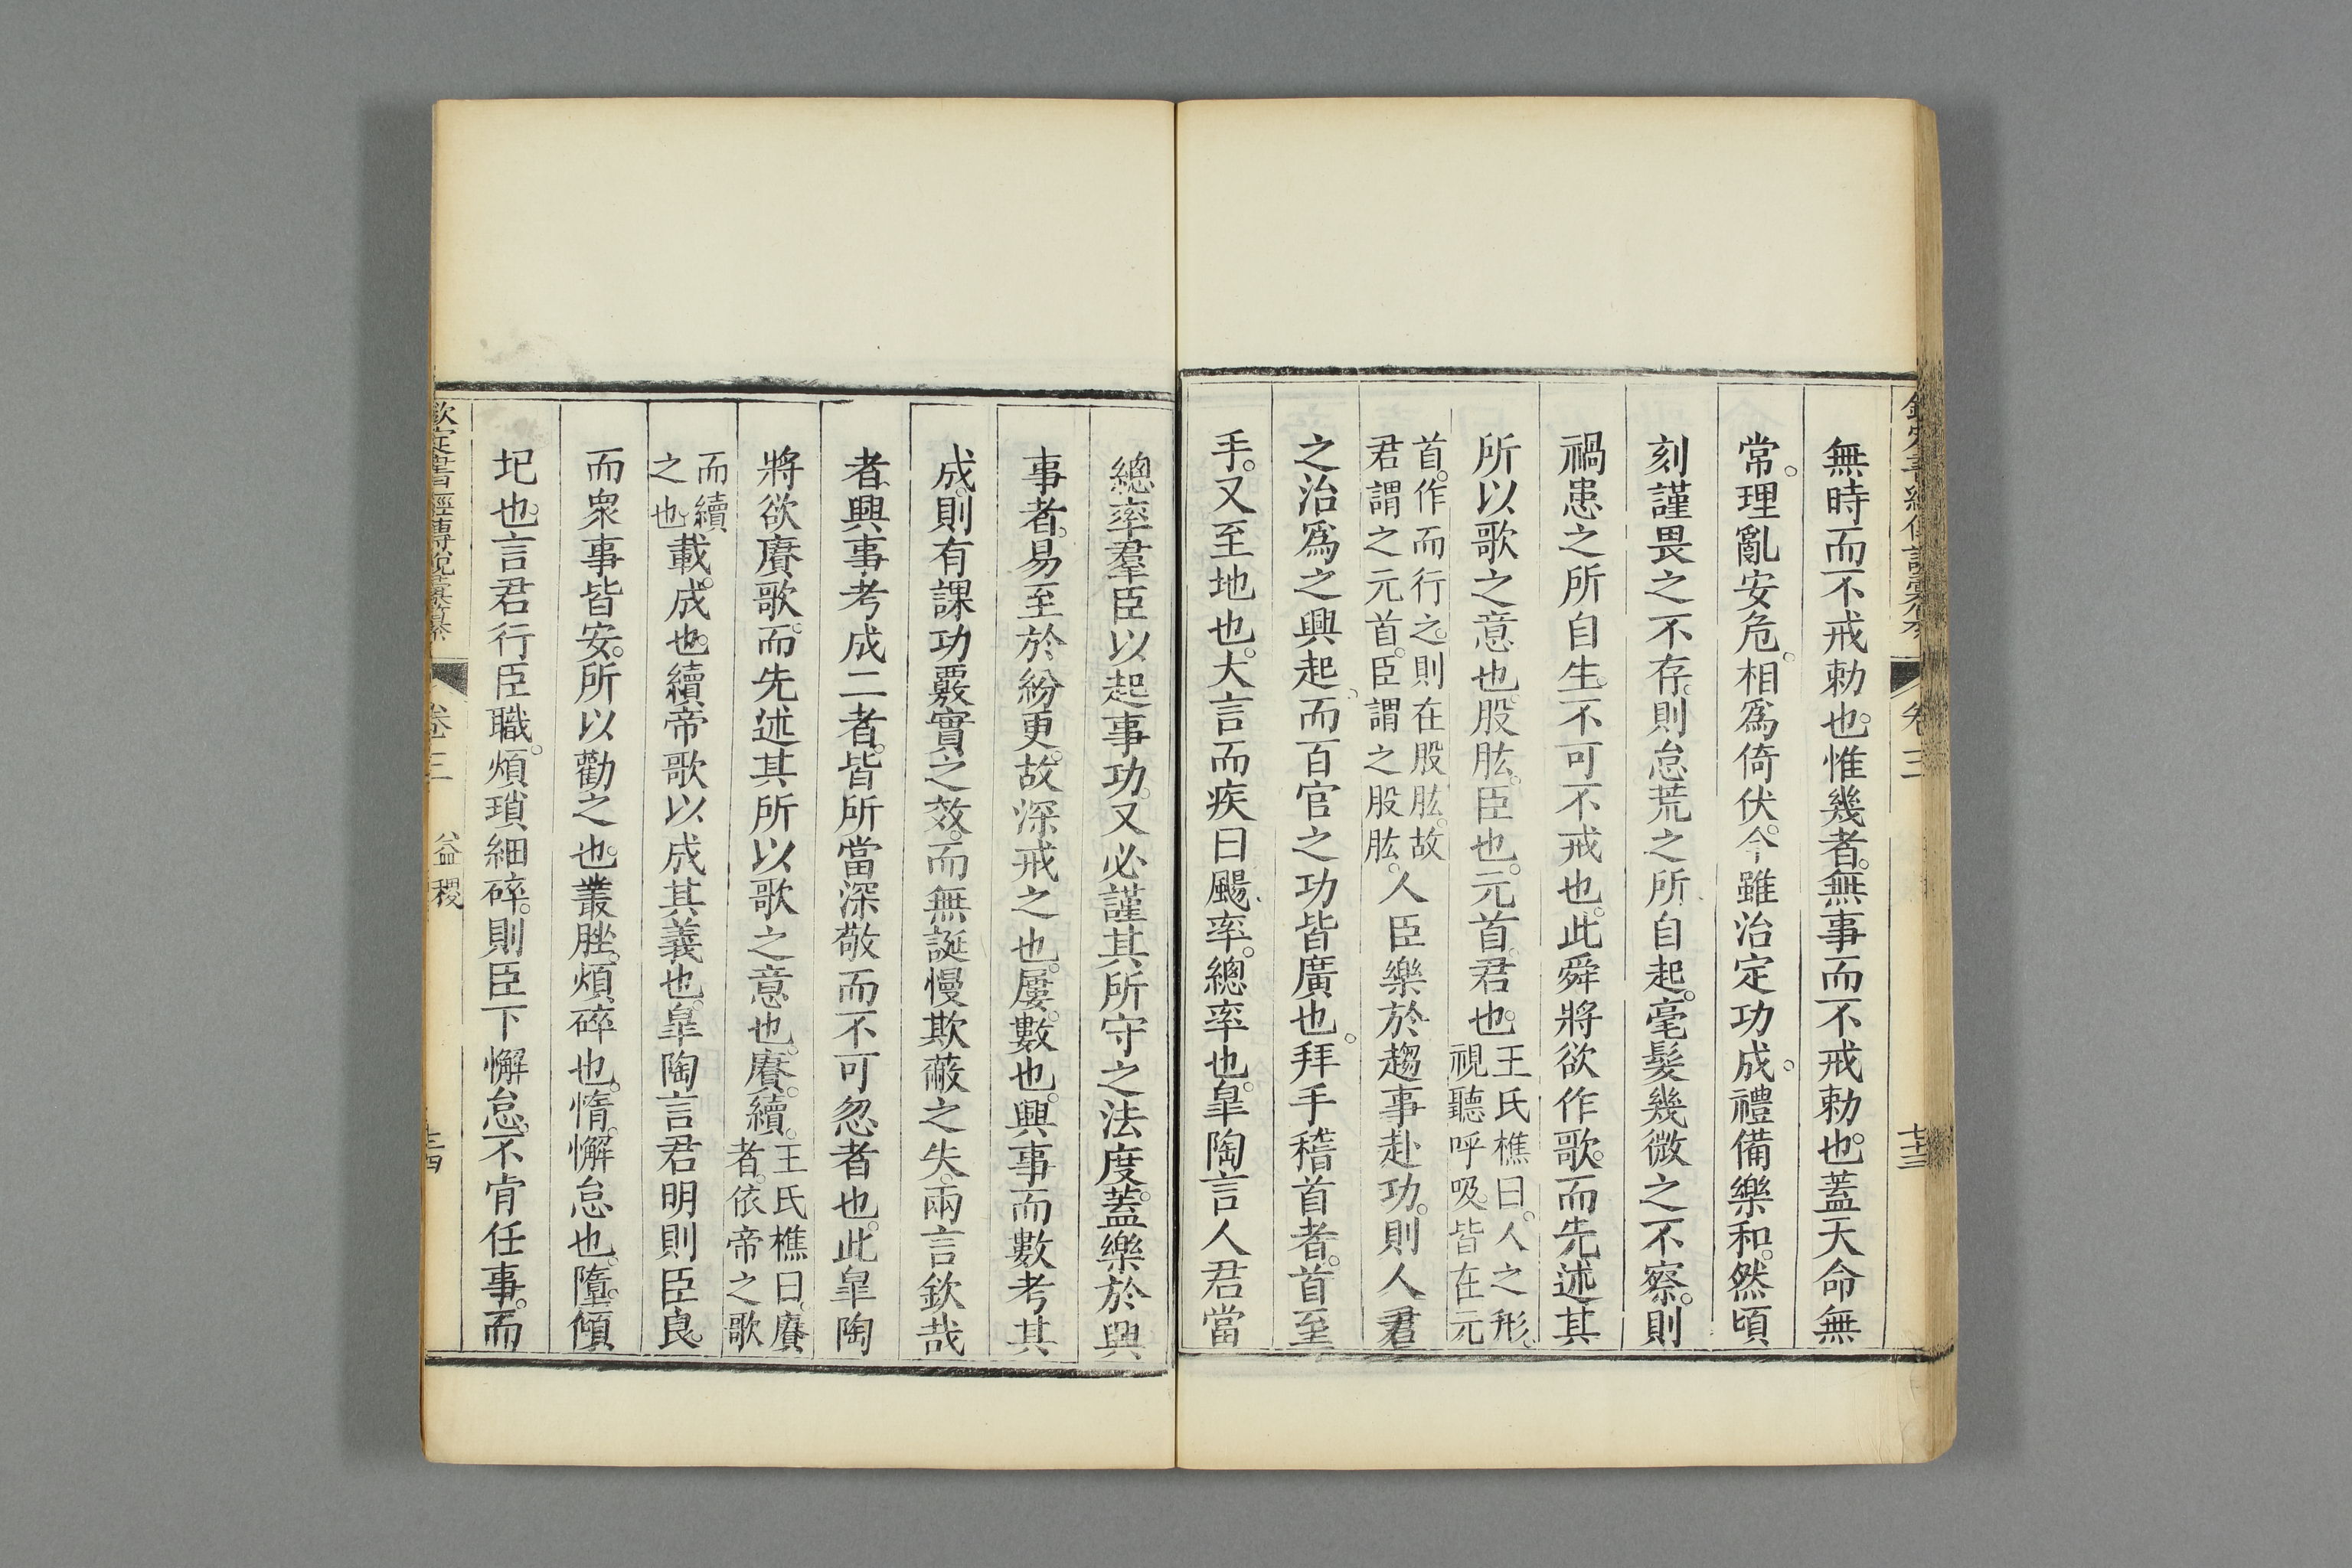 無時而不戒勅也。惟幾者。無事而不戒勅也。蓋天命無
常。理亂安危。相爲倚伏。今雖治定功成。禮備樂和。然頃
刻謹畏之不存。則怠荒之所自起。毫髮幾微之不察。則
禍患之所自生。不可不戒也。此舜將欲作歌。而先述其
所以歌之意也。股肱。臣也。元首。君也。王氏樵曰。人之形。視聽呼吸。皆在元
首。作而行之。則在股肱。故君謂之元首。臣謂之股肱。人臣樂於趨事赴功。則人君
之治爲之興起。而百官之功皆廣也。拜手稽首者。首至
手。又至地也。大言而疾曰颺。率。總率也。皐陶言人君當
總率羣臣以起事功。又必謹其所守之法度。蓋樂於興
事者。易至於紛更。故深戒之也。屢。數也。興事而數考其
成。則有課功覈實之效。而無誕慢欺蔽之失。兩言欽哉
者。興事考成二者。皆所當深敬而不可忽者也。此皐陶
將欲賡歌。而先述其所以歌之意也。賡。續。王氏樵曰。賡者。依帝之歌
而續之也。載。成也。續帝歌以成其義也。皐陶言君明則臣良。
而衆事皆安。所以勸之也。叢脞。煩碎也。惰。懈怠也。墮。傾
圮也。言君行臣職。煩瑣細碎。則臣下懈怠。不肯任事。而
欽定書經傳說彙纂
卷三
益稷